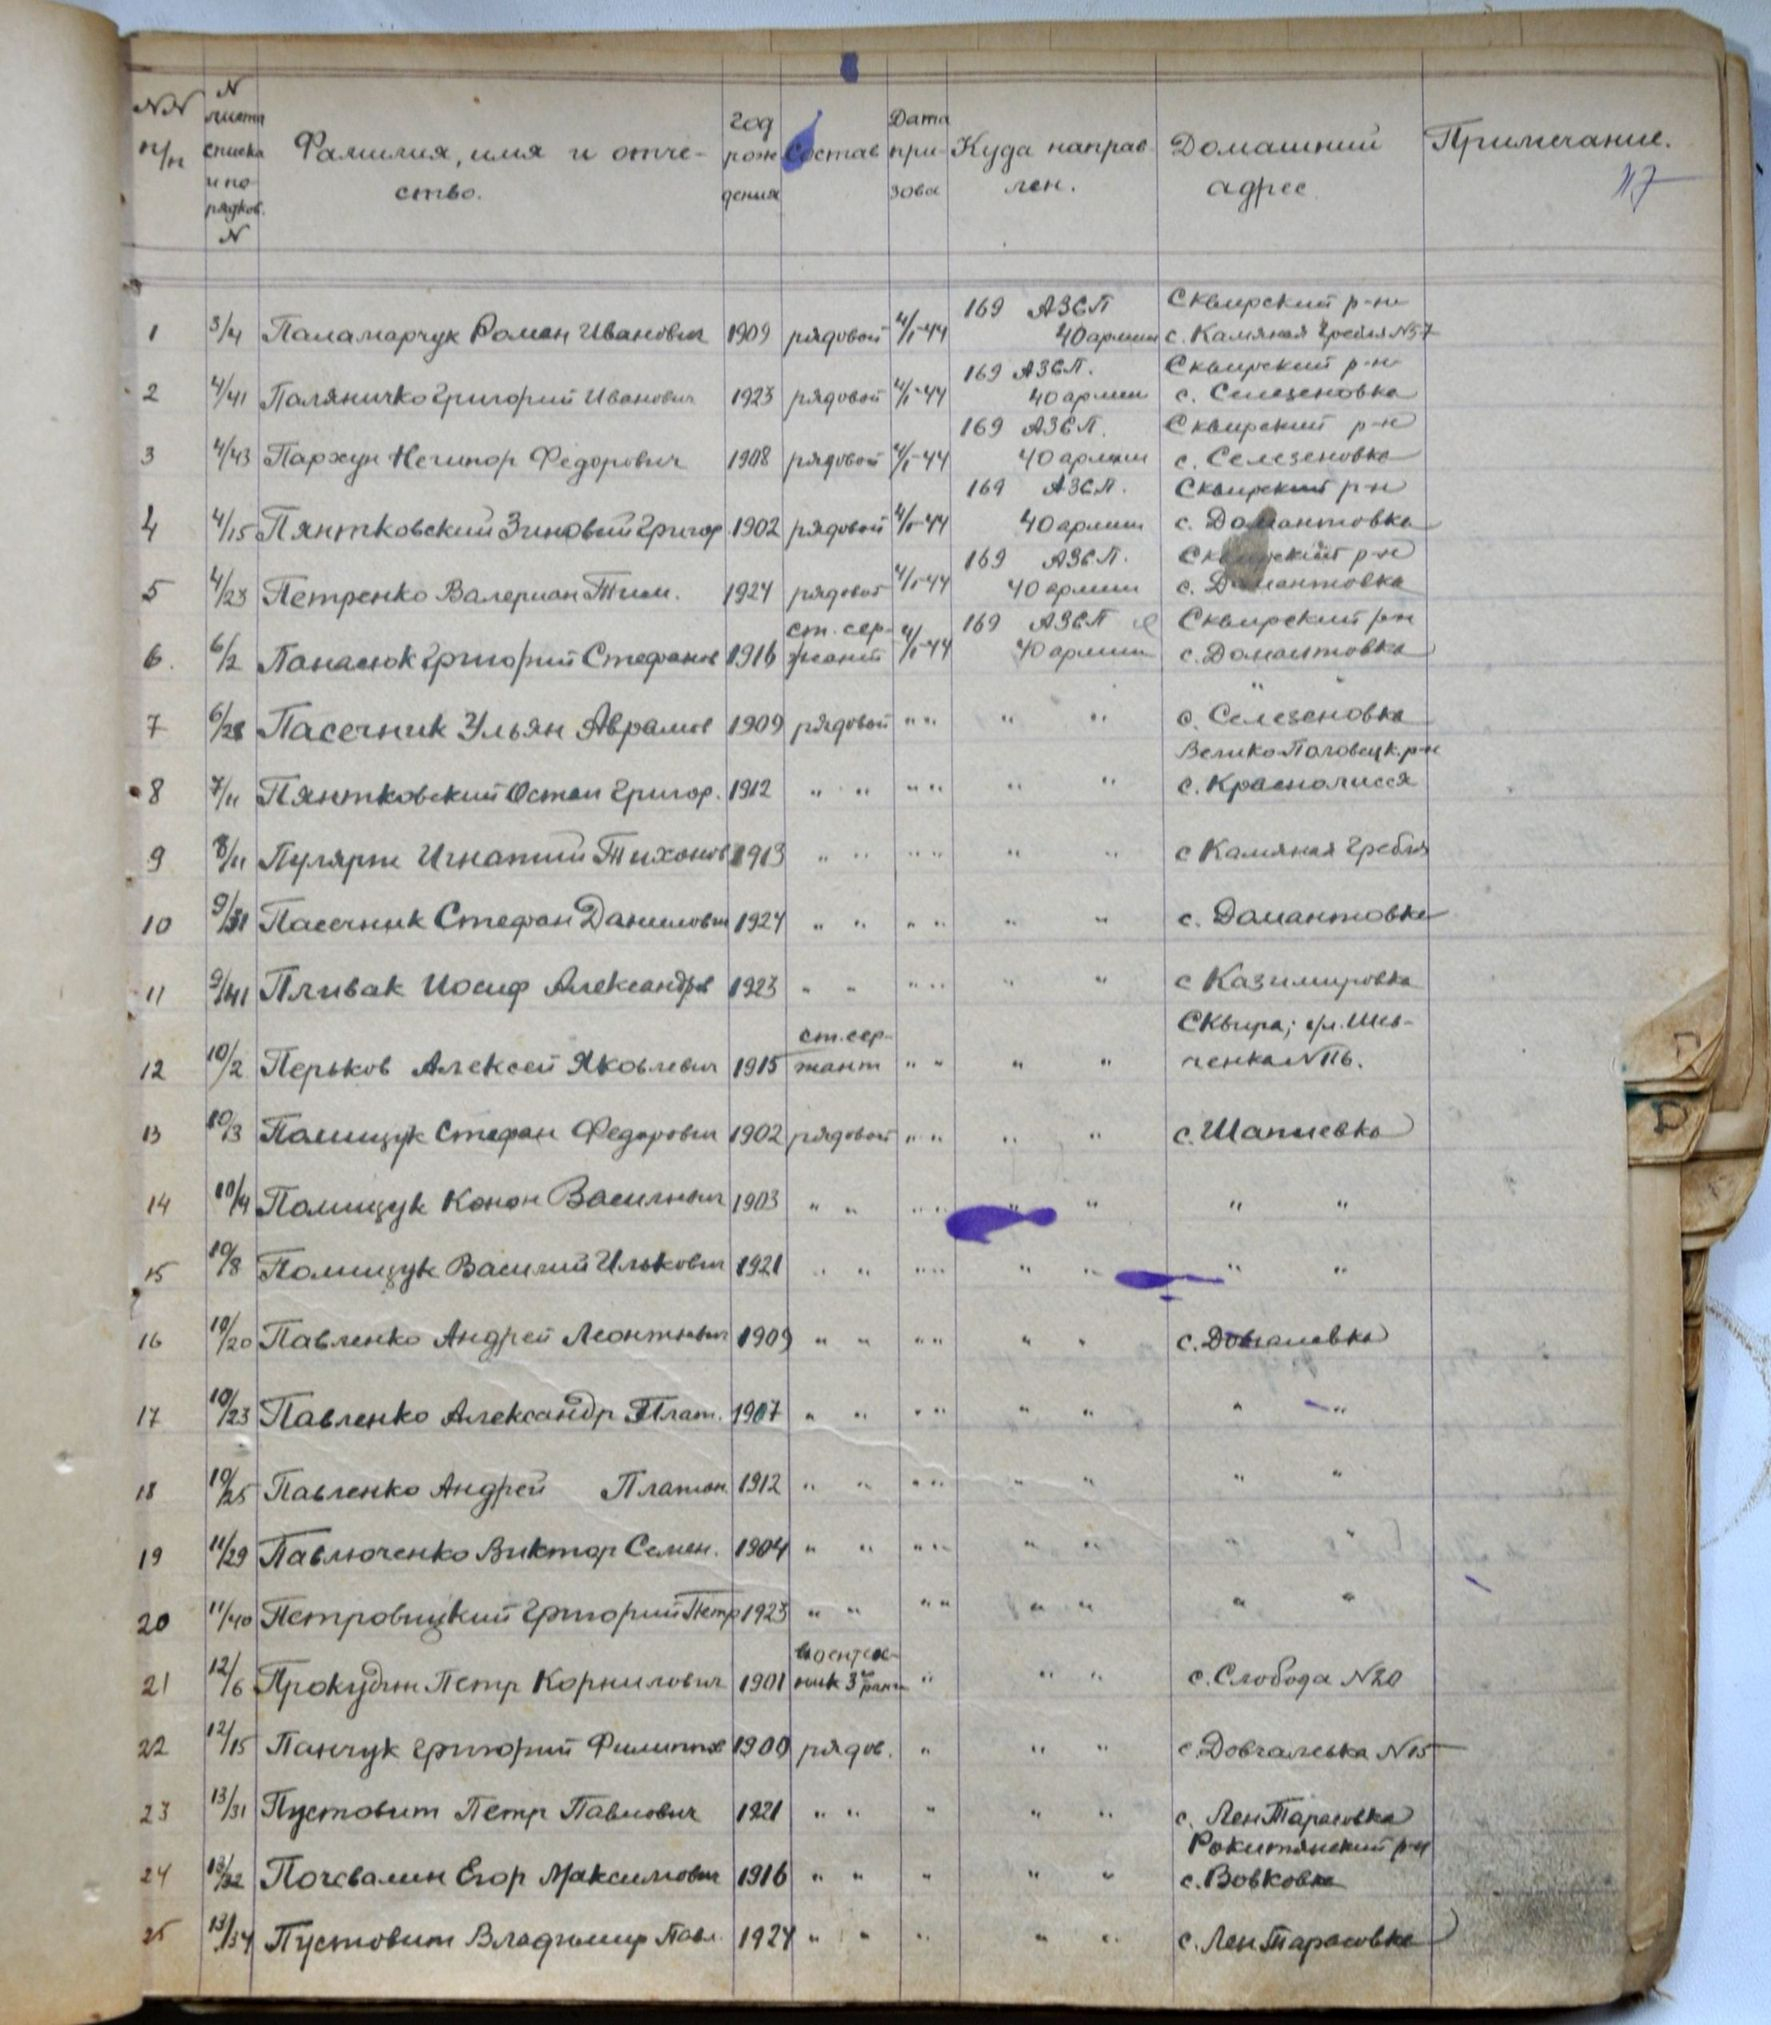 NN п/п N листа списка и порядков. N Фамилия, имя и отчество. Год рождения Состав Дата призова Куда направлен. Домашний адрес Примечание.
17
1 3/4 Паламарчук Роман Иванович 1909 рядовой 4/I-44 169 АЗСП 40 армии Сквирский р-н с. Камяная Гребля N57
2 4/41 Паляничко Григорий Иванович 1923 рядовой 4/I-44 169 АЗСП. 40 армии Сквирский р-н с. Селезеновка
3 4/43 Пархун Нечипор Федорович 1908 рядовой 4/I-44 169 АЗСП. 40 армии Сквирский р-н с. Селезеновка
4 4/15 Пянтковский Зиновий Григор 1902 рядовой 4/I-44 169 АЗСП. 40 армии Сквирский р-н с. Домантовка
5 4/23 Петренко Валериан Тим. 1924 рядовой 4/I-44 169 АЗСП. 40 армии Сквирский р-н с. Домантовка
6. 6/2 Панасюк Григорий Стефанов 1916 ст. сержант 4/I-44 169 АЗСП 40 армии Сквирский р-н с. Домантовка
7 6/28 Пасечник Ульян Аврамов 1909 рядовой " " " " " " с. Селезеновка
8 7/11 Пянтковский Остап Григор. 1912 " " " " " " Велико-Половецк. р-н с. Краснолисся
9 8/11 Пулярт Игнатий Тихонов 1913 " " " " " " с Камяная Гребля
10 9/31 Пасечник Стефан Данилович 1924 " " " " " " с. Домантовка
11 9/41 Пливак Иосиф Александров 1923 " " " " " " с Казимировка
12 10/2 Перьков Алексей Яковлевич 1915 ст. сержант " " " " Сквира; ул. Шевченка N
13 10/3 Полищук Стефан Федорович 1902 рядовой " " " " с. Шапиевка
14 10/4 Полищук Конон Васильевич 1903 " " " " " " " "
15 10/8 Полищук Василий Илькович 1921 " " " " " " " "
16 10/20 Павленко Андрей Леонтьевич 1909 " " " " " " с. Довгалевка
17 10/23 Павленко Александр Плат. 1907 " " " " " " " "
18 10/25 Павленко Андрей Платон 1912 " " " " " " " "
19 11/29 Павлюченко Виктор Семен. 1904 " " " " " " " "
20 11/40 Петровицкий Григорий Петр 1923 " " " " " " " "
21 12/6 Прокудин Петр Корнилович 1901 воентехник 3го ранга " " " с. Слобода N20
22 12/15 Панчук Григорий Филиппов 1900 рядов. " " " с. Довгалевка N15
23 13/31 Пустовит Петр Павлович 1921 " " " " " с. Лен Тарасовка
24 13/32 Почвалин Егор Максимович 1916 " " " " " Рокитянский р-н с. Вовковка
25 13/34 Пустовит Владимир Павл. 1924 " " " " " с. Лен Тарасовка
П
Р